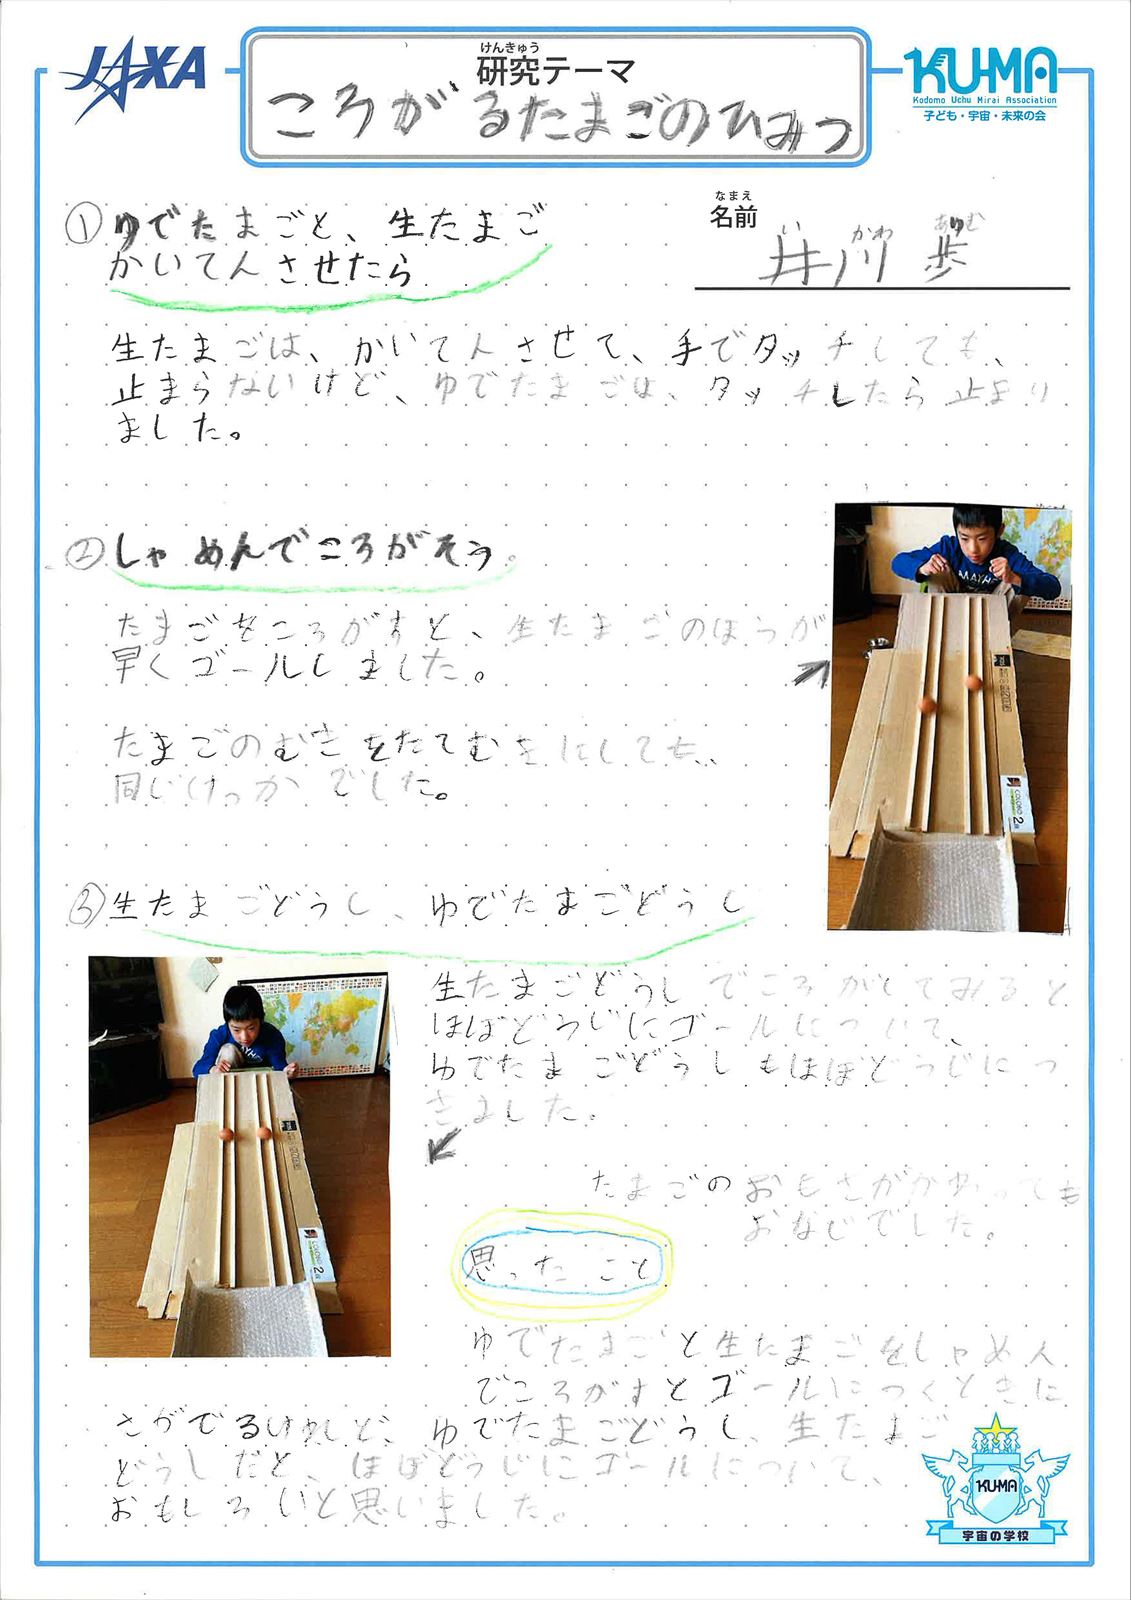 JAXA
けんきゅう
研究テーマ
ころがるたまごのひみつ
KU-MA
Kodomo Uchu Mirai Association
子ども・宇宙・未来の会
なまえ
名前
い かわ あゆむ
井川 歩
① ゆでたまごと、生たまご
かいてんさせたら
生たまごは、かいてんさせて、手でタッチしても、
止まらないけど、ゆでたまごは、タッチしたら止まり
ました。
② しゃめんでころがそう。
たまごをころがすと、生たまごのほうが
早くゴールしました。
たまごのむきをたてむきにしても、
同じけっかでした。
③ 生たまごどうし、ゆでたまごどうし
生たまごどうしでころがしてみると
ほぼどうじにゴールについて、
ゆでたまごどうしもほぼどうじにつ
きました。
たまごのおもさがかわっても
おなじでした。
思ったこと
ゆでたまごと生たまごをしゃめん
でころがすとゴールにつくときに
さがでるけれど、ゆでたまごどうし、生たまご
どうしだと、ほぼどうじにゴールについて、
おもしろいと思いました。
KU-MA
宇宙の学校